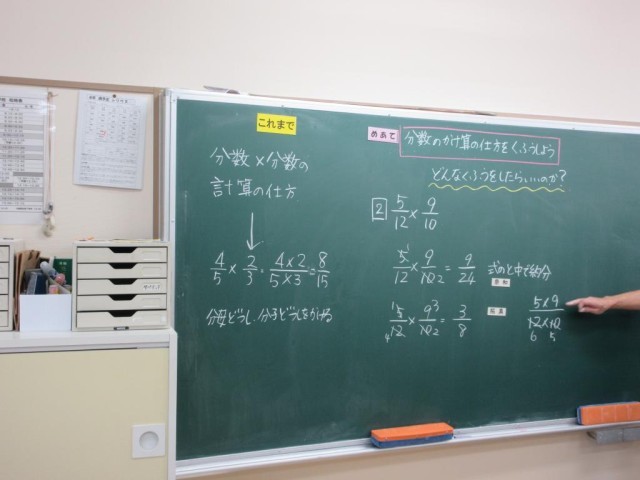 これまで
分数×分数の
計算の仕方
4/5 × 2/3 = 4×2/5×3 = 8/15
分母どうし、分子どうしをかける
めあて
分数のかけ算の仕方をくふうしよう
どんなくふうをしたらいいのか？
2 5/12 × 9/10
5/12 × 9/10 = 9/24
1 2
式のと中で約分
5/12 × 9/10 = 3/8
1 4 3 2
5×9/12×10
6 5